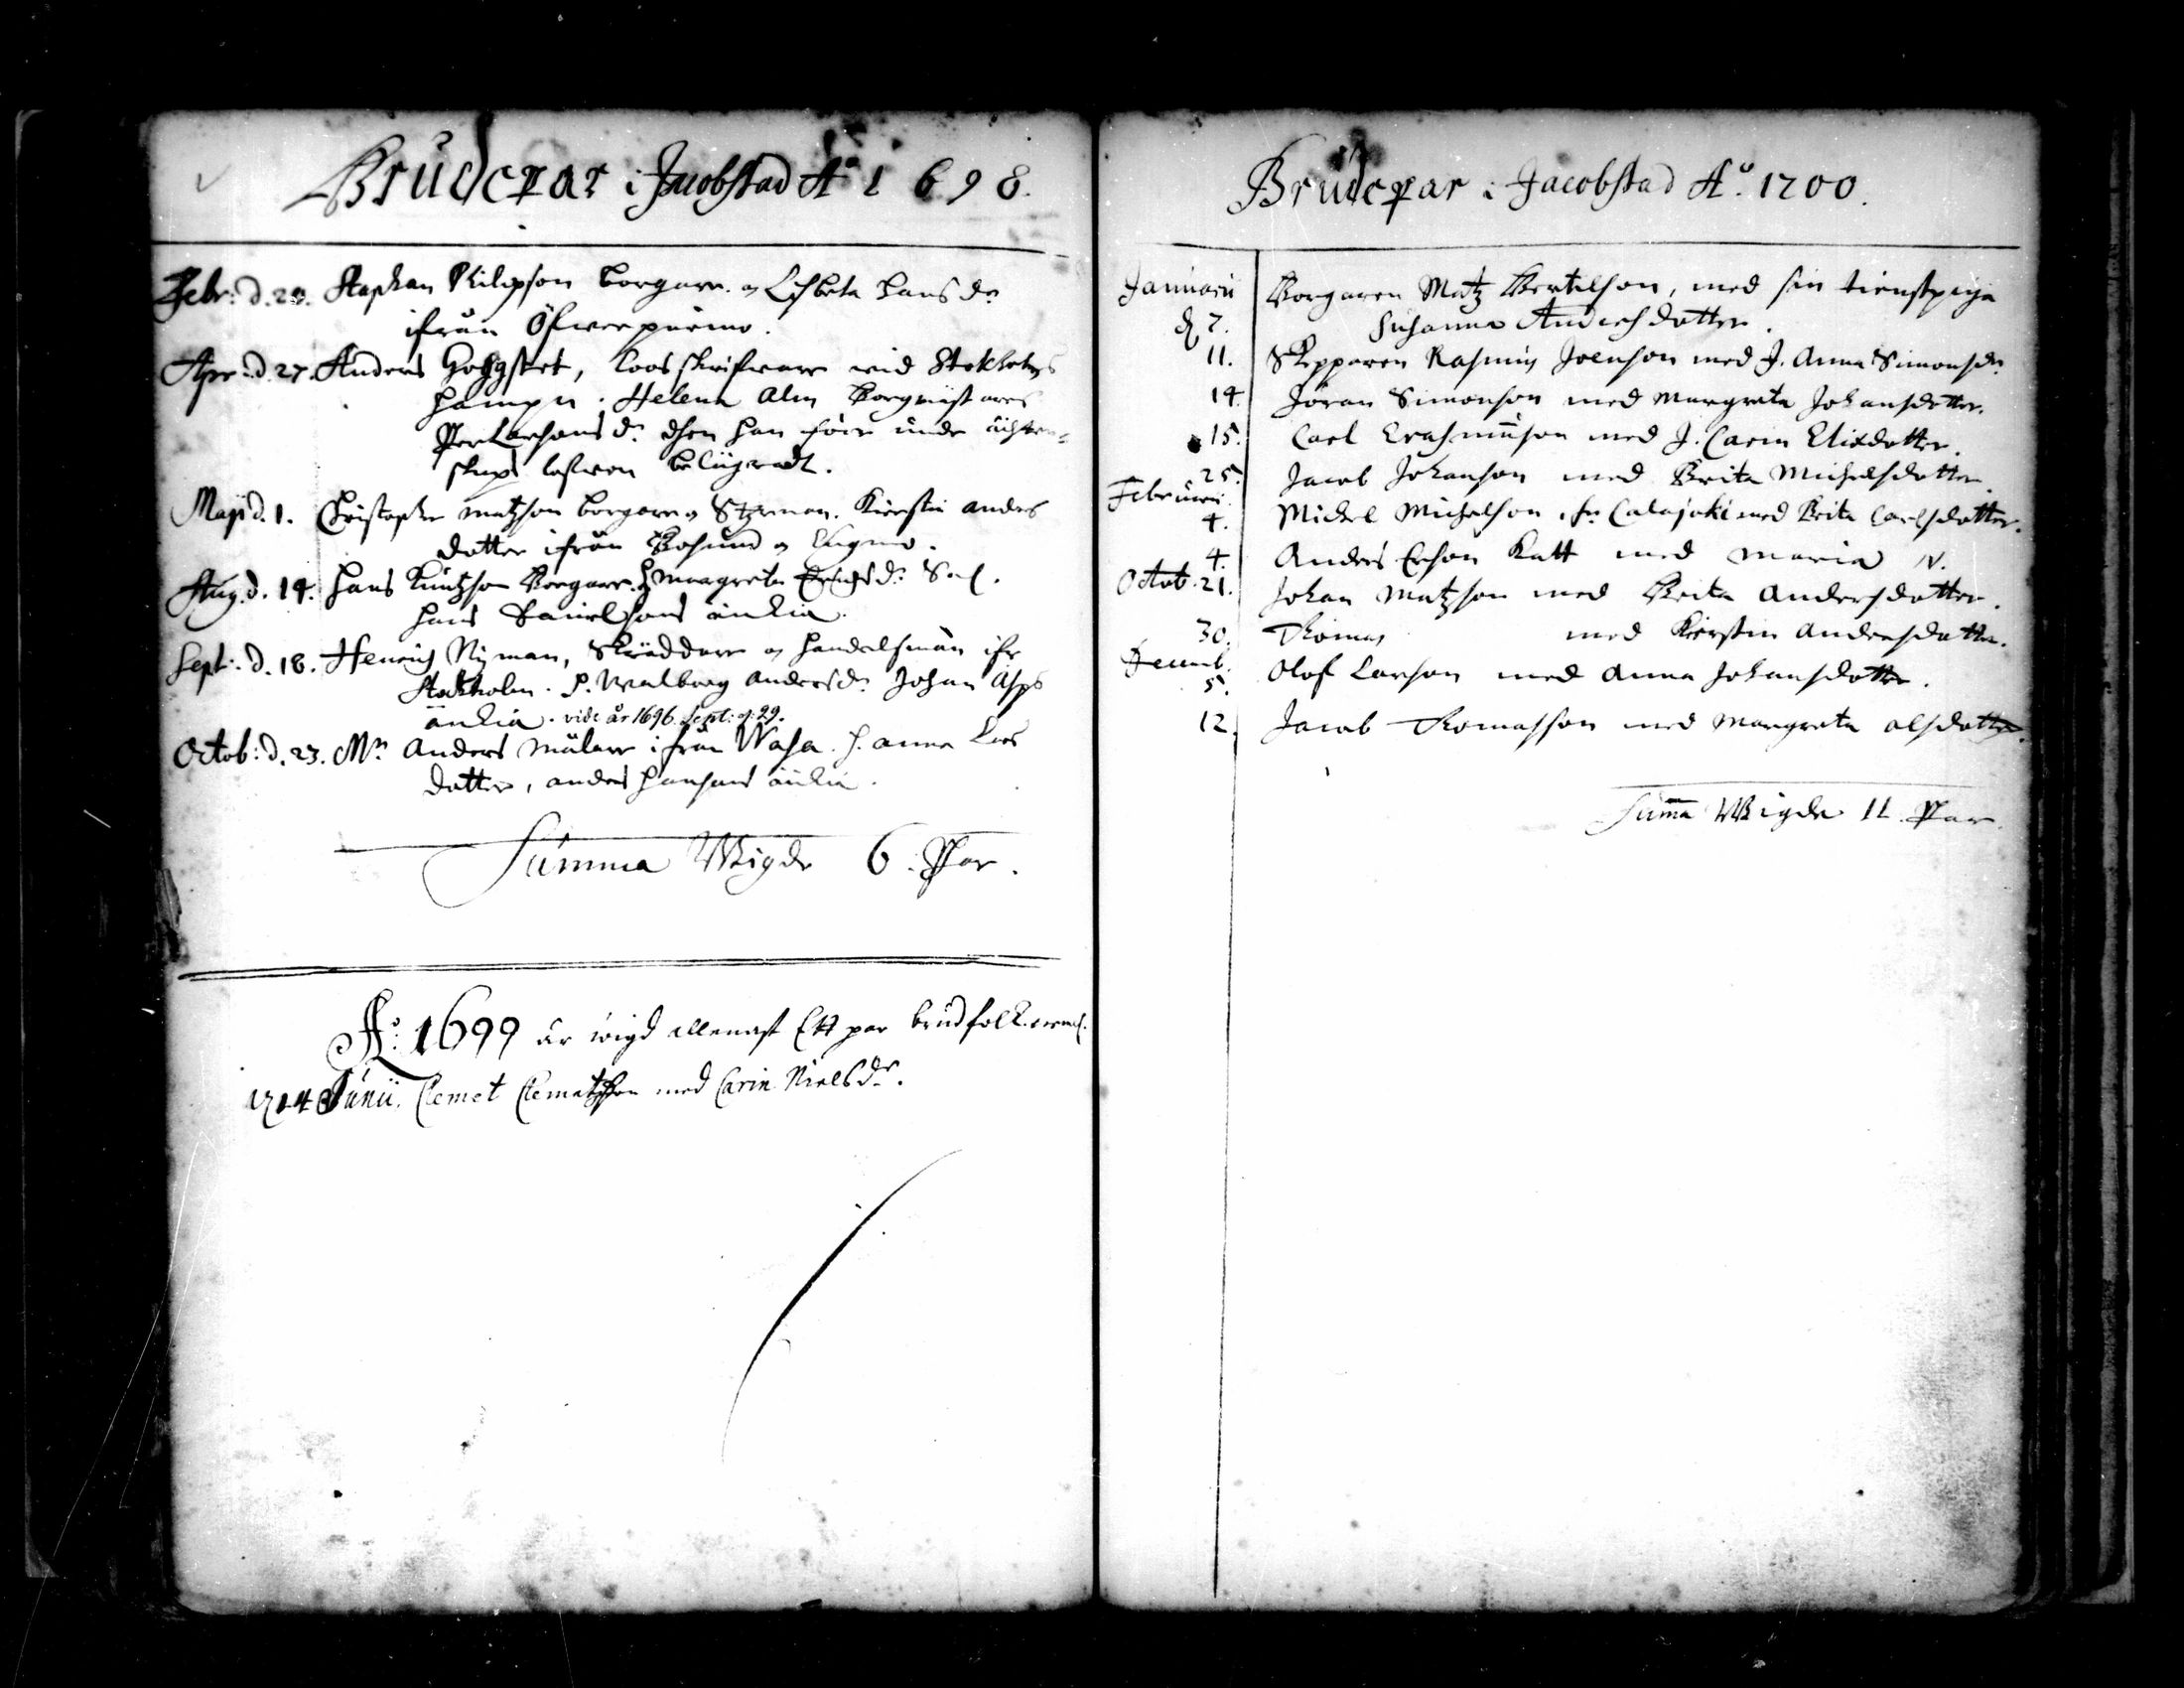 Brudepar i Jacobstad Aº 1698.
Febr: d. 20. Staphan Philipson borgare. og Lisbeta Hans dr
ifrån Öfwerpurmo.
Apr: d. 27. Anders skrifware wid Stokholms
hampn. Helena Alm Borgmästares
Per Larsons dr. dhen han förr under ächten-
skaps belägradt.
Maji d. 1. Christopher Matzson borgare og Styrman. Kierstin Anders
dotter ifrån Bosund og Eugmo.
Aug. d. 14. Hans Kuntzson Borgare. H. Margreta Erichsdr. Sal.
Hans Danielsons änkia.
Sept: d. 18. Henrich Nyman, Skräddare og handelsman ifr
Stokholm. P. Walborg Andersdr. Johan Asps
änkia. vide år 1696. Sept: d: 29.
Octob: d. 23. Mr. Anders Målare ifrån Wasa. H. Anna Lars
dotter, Anders Hansons änkia.
Summa Wigde 6. Par.
Aº. 1699 är wigd allenast Ett par brudfolk.
4 Junii. Clemet Clemetzson med Carin Nielsdr.
Brudepar i Jacobstad Aº. 1700.
Januarii Borgaren Matz Bertilson, med sin tienstpiga
d. 7. Susanna Andersdotter.
11. Skepparen Rasmus Joenson med J. Anna Simonsdr.
14. Jöran Simonson med Margreta Johansdotter.
15. Carl Erasmuson med J. Carin Elixdotter.
25. Jacob Johanson med Brita Michelsdotter.
Februari:
4. Michel Michelson ifr. Calajoki med Brita Carlsdotter.
4. Anders Erson Katt med Maria N.
Octob. 21. Johan Matzson med Brita Andersdotter.
30. Thomas med Kierstin Andersdotter.
Decemb.
5. Olof Larson med Anna Johansdotter.
12. Jacob Thomasson med Margreta Olsdotter.
Summa Wigde 11. Par.